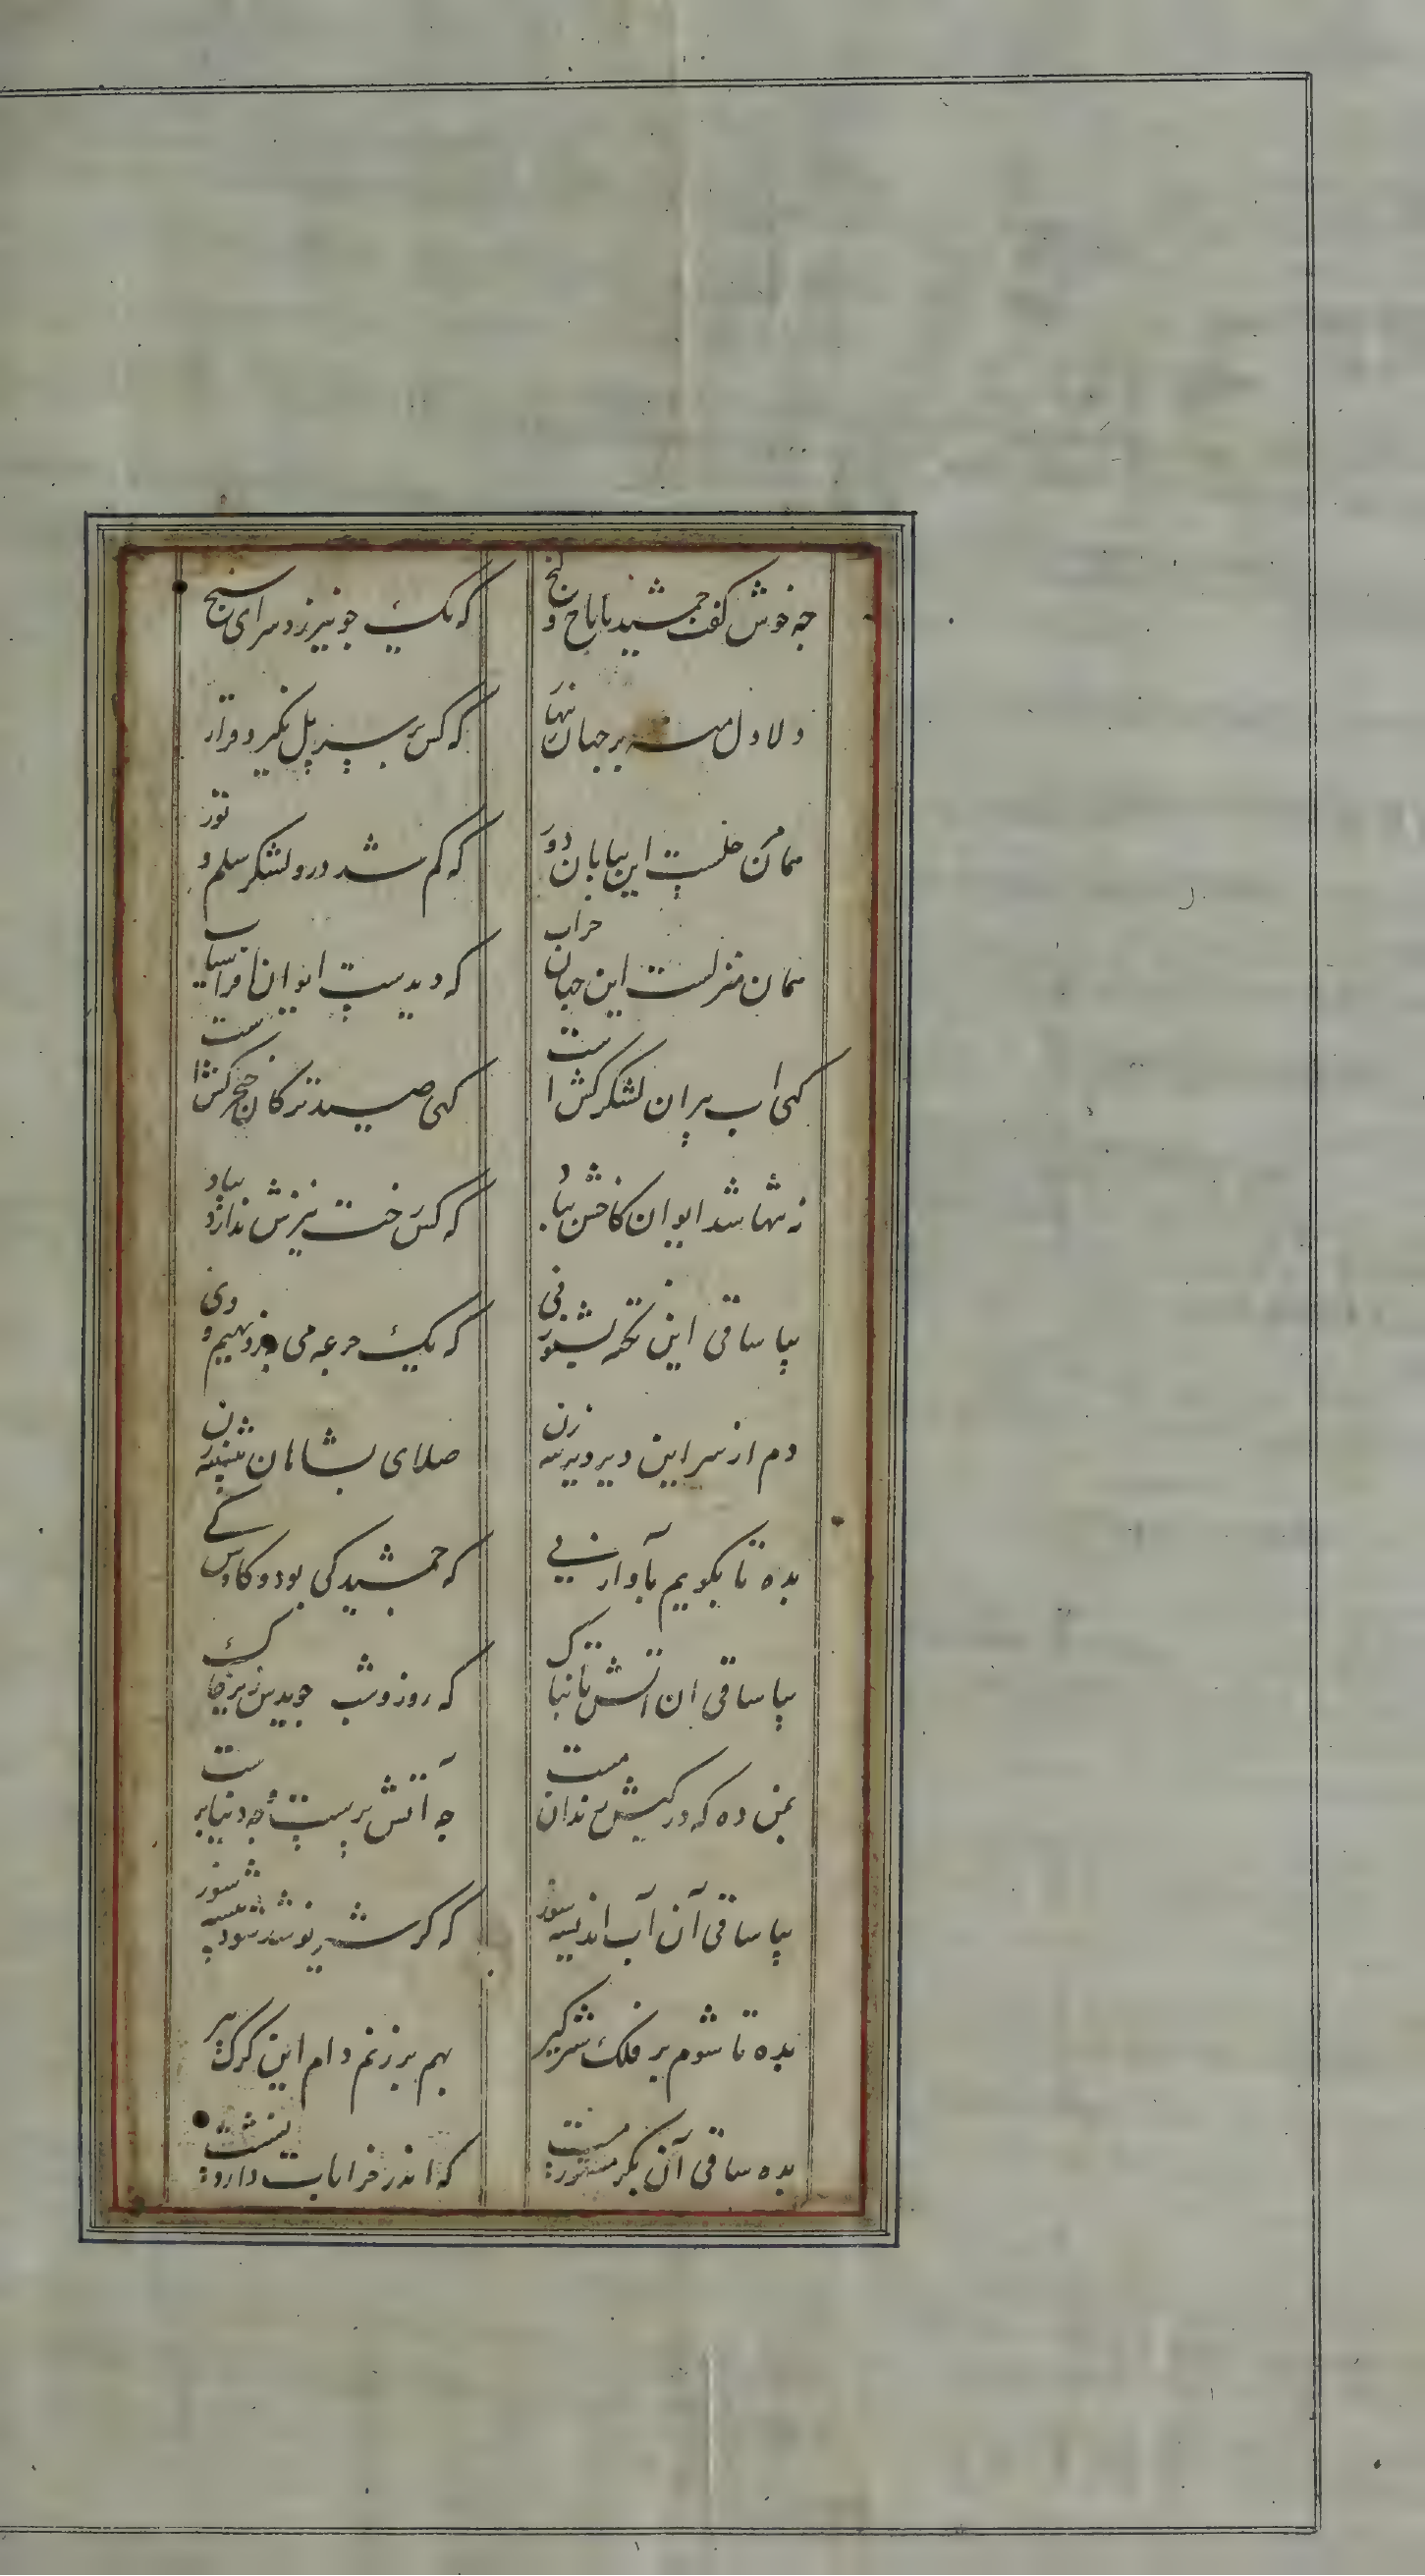 چه خوش گفت جمشید با تاج و گنج که یک جو نیرزد سرای سپنج
دلا دل منه بر جهان زینهار که کس بر سر پل نگیرد قرار
همان مرحلست این بیابان دور که گم شد درو لشکر سلم و تور
همان منزلست این جهان خراب که دیدست ایوان افراسیاب
کجا پیران لشکرکش است کجا شیده ترکان خنجرکش است
نه تنها شد ایوان کاخش بباد که کس دخت نیزش ندارد بیاد
بیا ساقی این نکته بشنو ز نی که یک جرعه می به ز دیهیم و کی
دم از سر این دیر دیرینه زن صلای بشاهان پیشینه زن
بده تا بگویم بآواز نی که جمشید کی بود و کاوس کی
بیا ساقی ان اتش تابناک که روز و شب جویدش زیر خاک
بمن ده که در کیش رندان مست چه آتش پرست و چه دنیا پرست
بیا ساقی آن آب اندیشه سوز که گر شیر نوشد شود بیشه سوز
بده تا شوم بر فلک شیر گیر بهم بر زنم دام این گرگ پیر
بده ساقی آن بکر مستور مست که اندر خرابات دارد نشست